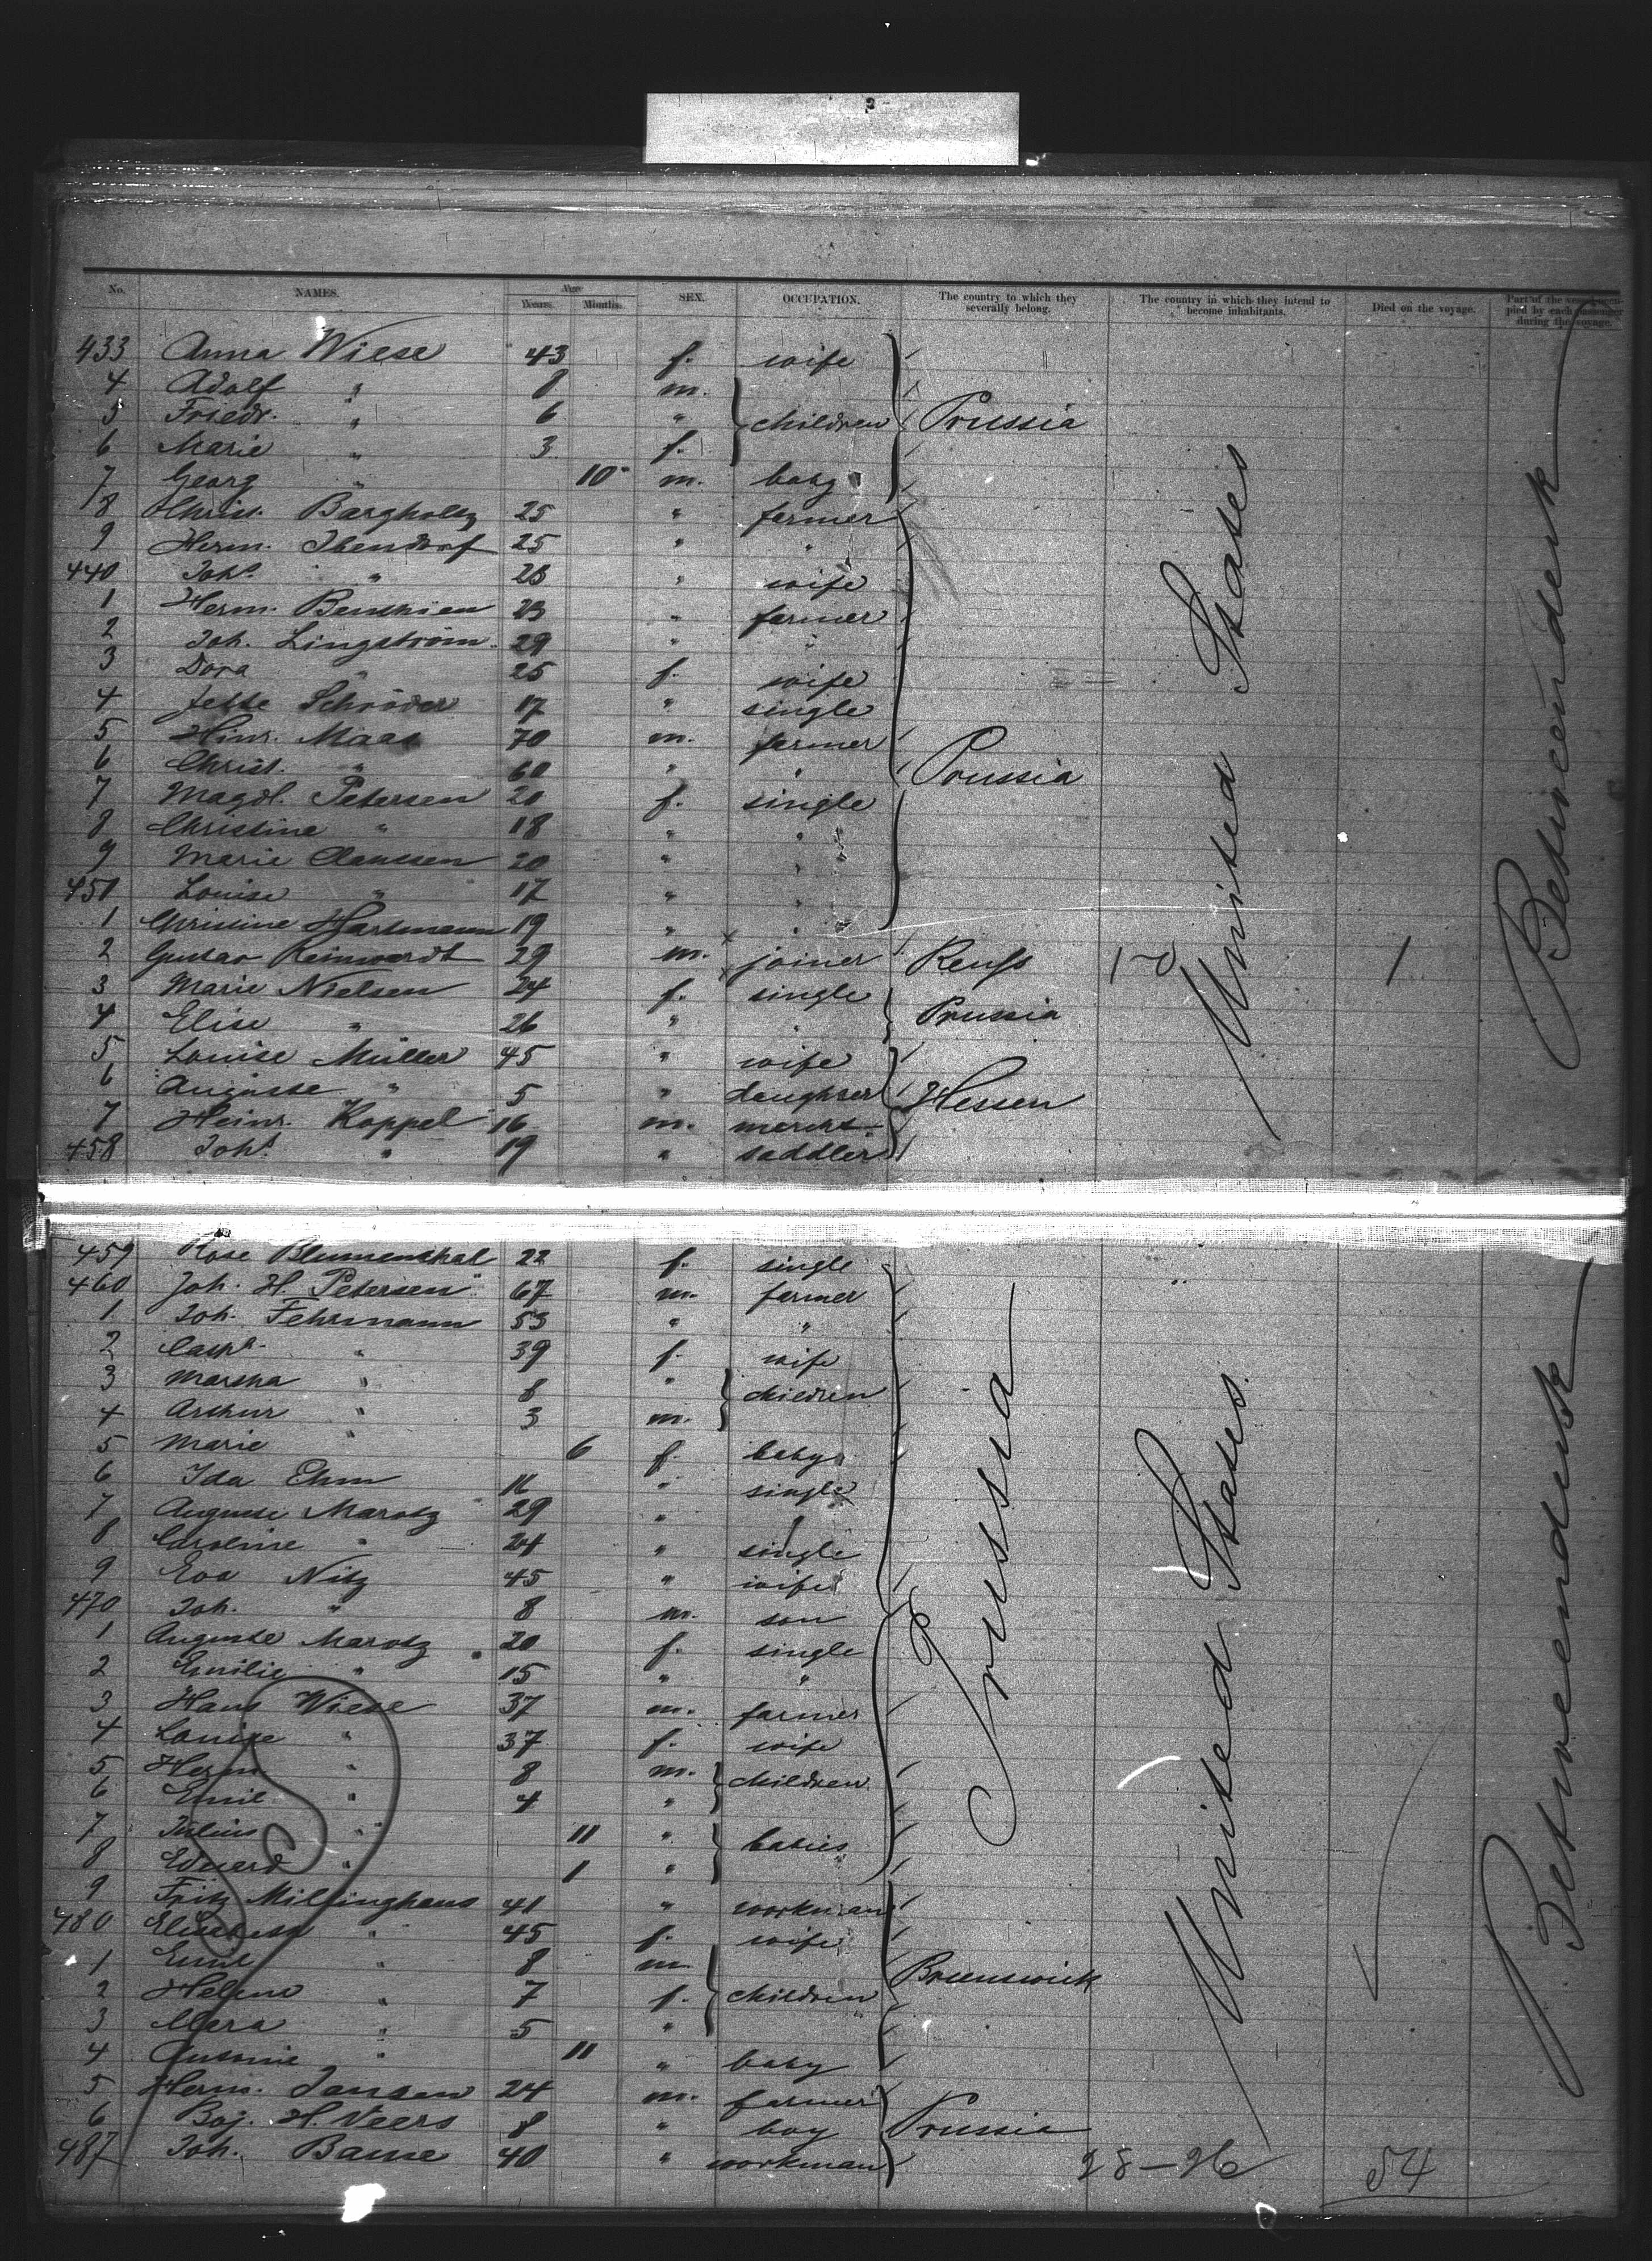 No. NAMES. Age Years. Months. SEX. OCCUPATION. The country to which they severally belong. The country in which they intend to become inhabitants. Died on the voyage. Part of the vessel occupied by each passenger during the voyage.
433 Anna Wiese 43 f. wife
4 Adolf " 8 m.
5 Friedr. " 6 " children Prussia
6 Marie " 3 f.
7 Georg " 10 m. baby
8 Christ. Bargholtz 25 " farmer
9 Herm. Ibendorf 25 " "
440 Johe " 28 " wife
1 Herm. Benthien 23 " farmer
2 Joh. Lingström 29 " "
3 Dora " 25 f. wife
4 Jette Schröder 17 " single
5 Hinr. Maas 70 m. farmer
6 Christ. " 60 " " Prussia
7 Magdl. Petersen 20 f. single
8 Christine " 18 " "
9 Marie Claussen 20 " "
450 Louise " 17 " "
1 Christine Hartmann 19 " "
2 Gustav Reinwardt 29 m. joiner Reuß 1-0 1
3 Marie Nielsen 24 f. single
4 Elise " 26 " " Prussia
5 Louise Müller 45 " wife
6 Auguste " 5 " daughter Hessen
7 Heinr. Koppel 16 m. mercht.
458 Joh. " 19 " saddler
United States
Betweendeck
459 Rose Blumenthal 22 f. single
460 Joh. H. Petersen 67 m. farmer
1 Joh. Fehrmann 53 " "
2 Cathe " 39 f. wife
3 Martha " 8 " children
4 Arthur " 3 m.
5 Marie " 6 f. baby
6 Ida Ehm 16 " single
7 Auguste Marotz 29 "
8 Caroline " 24 " single
9 Eva Nitz 45 " wife
470 Joh. " 8 m. son
1 Auguste Marotz 20 f. single
2 Emilie " 15 " "
3 Hans Wiese 37 m. farmer
4 Louise " 37 f. wife
5 Herm. " 8 m. children
6 Emil " 4 "
7 Julius " 11 " babies
8 Eduard " 1 "
9 Fritz Millinghaus 41 " workman
480 Elisabeth " 45 f. wife
1 Emil " 8 m Brunswick
2 Helene " 7 f. children
3 Clara " 5 "
4 Antonie " 11 " baby
5 Herm. Jansen 24 m. farmer
6 Boj. H. Veers 8 " boy Prussia
487 Joh. Banse 40 " workman 28-26 54
Prussia
United States.
Betweendeck